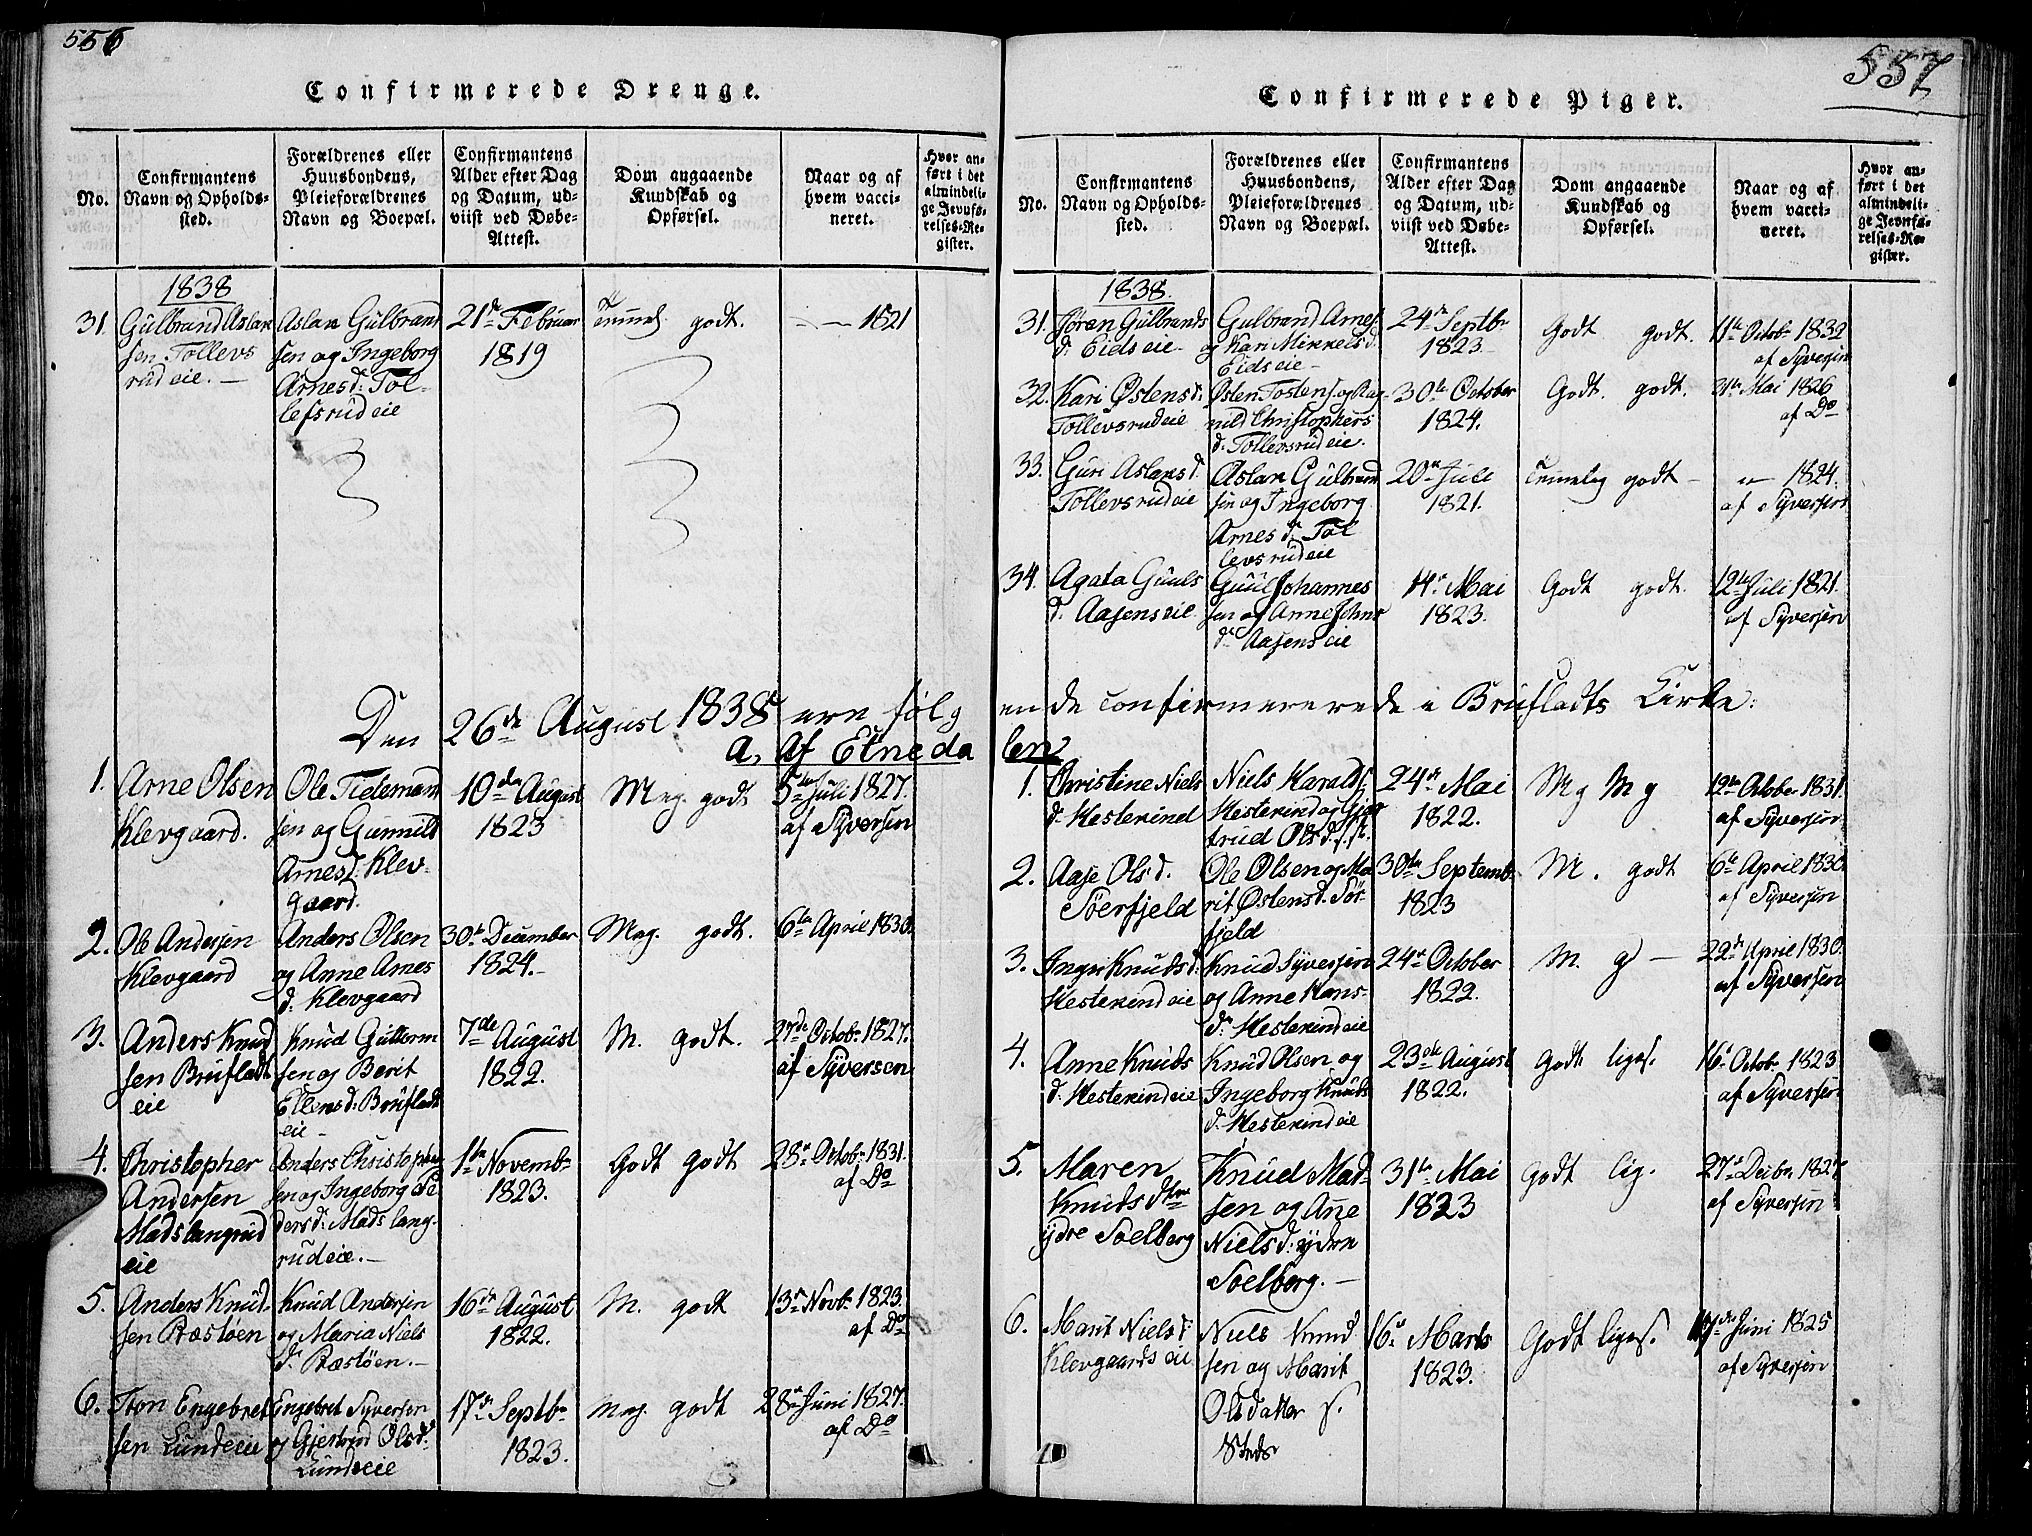 556
Confirmerede Drenge.
No.
Confirmantens
Navn og Opholds-
sted.
Forældrenes eller
Huusbondens,
Pleieforældrenes
Navn og Boepæl.
Confirmantens
Alder efter Dag
og Datum, ud-
viist ved Døbe-
Attest.
Dom angaaende
Kundskab og
Opførsel.
Naar og af
hvem vacci-
neret.
Hvor an-
ført i det
almindeli-
ge Jevnfø-
relses-Re-
gister.
1838
31.
Gulbrand Aslak
sen Tollevs
rudeie.
Aslak Gulbrand
sen og Ingeborg
Arnesd: Tol-
lefsrudeie
21de Februar
1819
godt.
1821
Den 26de August 1838 ere følg
A, Af Etneda
1.
Arne Olsen
Klevgaard.
Ole Tidemand
sen og Gunnild
Arnesd: Klev-
gaard.
10de August
1823
Meg. godt
5te Juli 1827.
af Syversen
2.
Ole Andersen
Klevgaard
Anders Olsen
og Anne Arnes
d: Klevgaard
30te December
1824.
Meg. godt.
6te April 1830.
3.
Anders Knud
sen Brufladt
eie
Knud Guttorm
sen og Berit
Ellensd: Brufladt
eie
7de August
1822.
M. godt.
27de Octobr 1827.
af Syversen
4.
Christopher
Andersen
Madslangrud
eie
Anders Christopher
sen og Ingeborg Pe
dersd: Madslang-
rudeie.
1te Novembr
1823.
Godt godt
28de Octobr 1831.
af Do
5.
Anders Knud-
sen Bæstøen
Knud Andersen
og Maria Niels
d: Bæstøen.
16de August
1822.
M. godt
13de Novbr 1823.
af Do
6.
Iton Engebret
sen Lundeie
Engebret Syversen
og Gjertrud Olsd:
Lundeie
17de Septbr
1823.
Meg. godt
28de Juni 1827.
af Do
557
Confirmerede Piger.
No.
Confirmantens
Navn og Opholds-
sted.
Forældrenes eller
Huusbondens,
Pleieforældrenes
Navn og Boepæl.
Confirmantens
Alder efter Dag
og Datum, ud-
viist ved Døbe-
Attest.
Dom angaaende
Kundskab og
Opførsel.
Naar og af
hvem vacci-
neret.
Hvor an-
ført i det
almindeli-
ge Jevnfø-
relses-Re-
gister.
1838.
31.
Jøran Gulbrands
d: Eidseie
Gulbrand Arnes.
og Kari Mikkelsd.
Eidseie
24de Septbr
1823.
Godt godt.
11te Octobr 1832
af Syversen
32.
Kari Østensd:
Tollevsrudeie
Østen Tostens. og Rag-
nild Christophers
d: Tollevsrudeie.
30te October
1824.
Godt. godt.
31te Mai 1826
af Do
33.
Guri Aslaksd.
Tollevsrudeie
Aslak Gulbrand
sen og Ingeborg
Arnesd. Tol
levsrudeie
20de Juli
1821.
Temmelig godt
1824.
af Syversen
34.
Agata Guuls
d. Aasenseie
Guul Johannes
sen og Anne Johns
d: Aasenseie
14de Mai
1823.
Godt godt.
12te Juli 1821.
af Syversen
ende confirmererede i Brufladts Kirke:
len
1.
Christine Niels
d: Hestekind
Niels Haralds.
Hestekind og Gjer
trud Olsd. s. st.
24de Mai
1822.
Mg Mg
12te Octobr 1831.
af Syversen
2.
Aase Olsd.
Søerfjeld
Ole Olsen og Ma
rit Østensd. Sør-
fjeld
30te Septembr
1823
M. godt
6te April 1830.
af Syversen
3.
Inger Knudsd.
Hestekindeie
Knud Syversen
og Anne Hans-
d: Hestekindeie
24de October
1822.
M. g
22de April 1830.
af Syversen
4.
Anne Knuds
d: Hestekindeie
Knud Olsen og
Ingeborg Knuds
d: Hestekindeie
23de August
1822.
Godt liges.
16de Octobr 1823
af Syversen
5.
Maren
Knudsdtr
ydre Soelberg
Knud Mad-
sen og Ane
Nielsd: ydre
Soelberg.
31te Mai
1823
Godt lig.
27de Decbr 1827
af Syversen
6.
Marit Nielsd
Klevgaardseie
Niels Knud
sen og Marit
Olsdatter s.
Steds
16de Marts
1823.
Godt liges.
17de Juni 1825
af Syversen